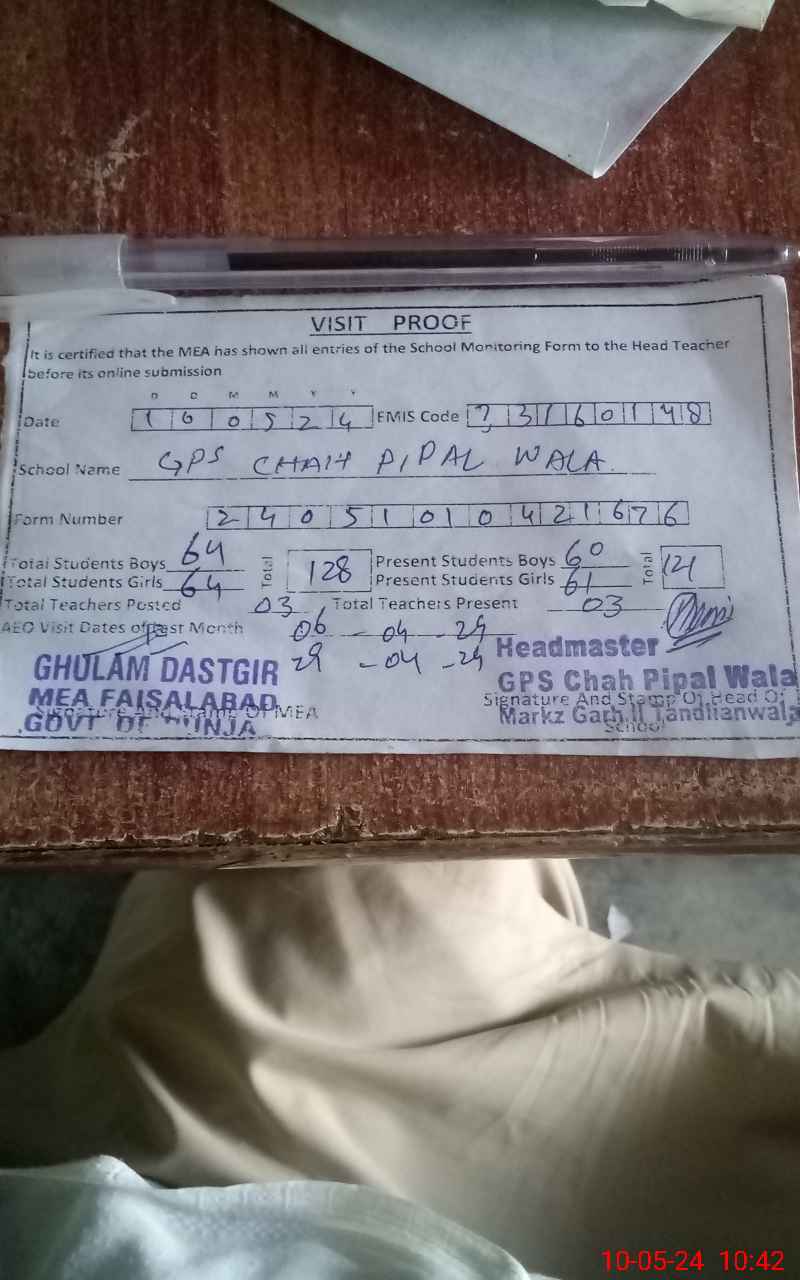 VISIT PROOF
It is certified that the MEA has shown all entries of the School Monitoring Form to the Head Teacher
before its online submission
D D M M Y Y
Date 1 0 0 5 2 4 EMIS Code 3 1 6 0 1 4 8
School Name GPS CHAH PIPAL WALA
Form Number 2 4 0 5 1 0 1 0 4 2 1 6 7 6
Total Students Boys 64 Total 128 Present Students Boys 60 Total 121
Total Students Girls 64 Present Students Girls 61
Total Teachers Posted 03 Total Teachers Present 03
AEO Visit Dates of Past Month 06 - 04 - 24
29 - 04 - 24
Headmaster
GHULAM DASTGIR
GPS Chah Pipal Wala
MEA FAISALABAD
Signature And Stamp Of Head Of
Signature And Stamp Of MEA
Markz Garh II Tandlianwala
GOVT OF PUNJAB
School
10-05-24 10:42